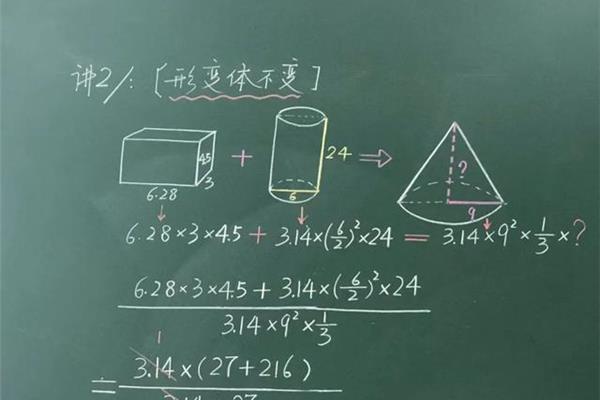 讲21: [形变体不变]
6.28 3 4.5 + 6 24 ⇒ ? 9
6.28×3×4.5 + 3.14×(6/2)²×24 = 3.14×9²×1/3×?
6.28×3×4.5+3.14×(6/2)²×24
3.14×9²×1/3
1
= 3.14×(27+216)